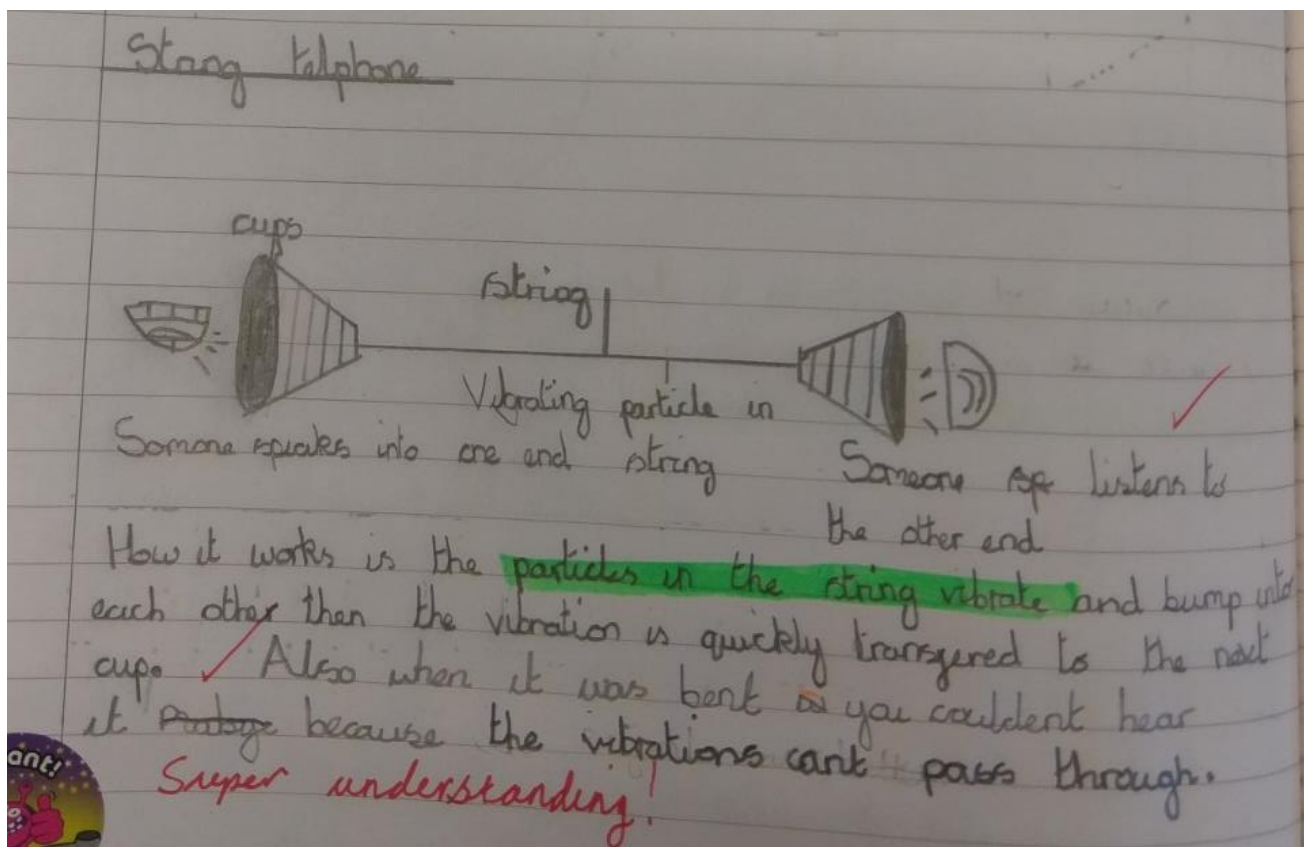 Strong talphone
cups
string
Vibrating particle in
string
Somone speakes into one end
Someone spe listens to
the other end
How it works is the particles in the string vibrate and bump into
each other then the vibration is quickly transfered to the next
cup. Also when it was bent you couldent hear
it because the vibrations cant pass through.
Super understanding!
ant!